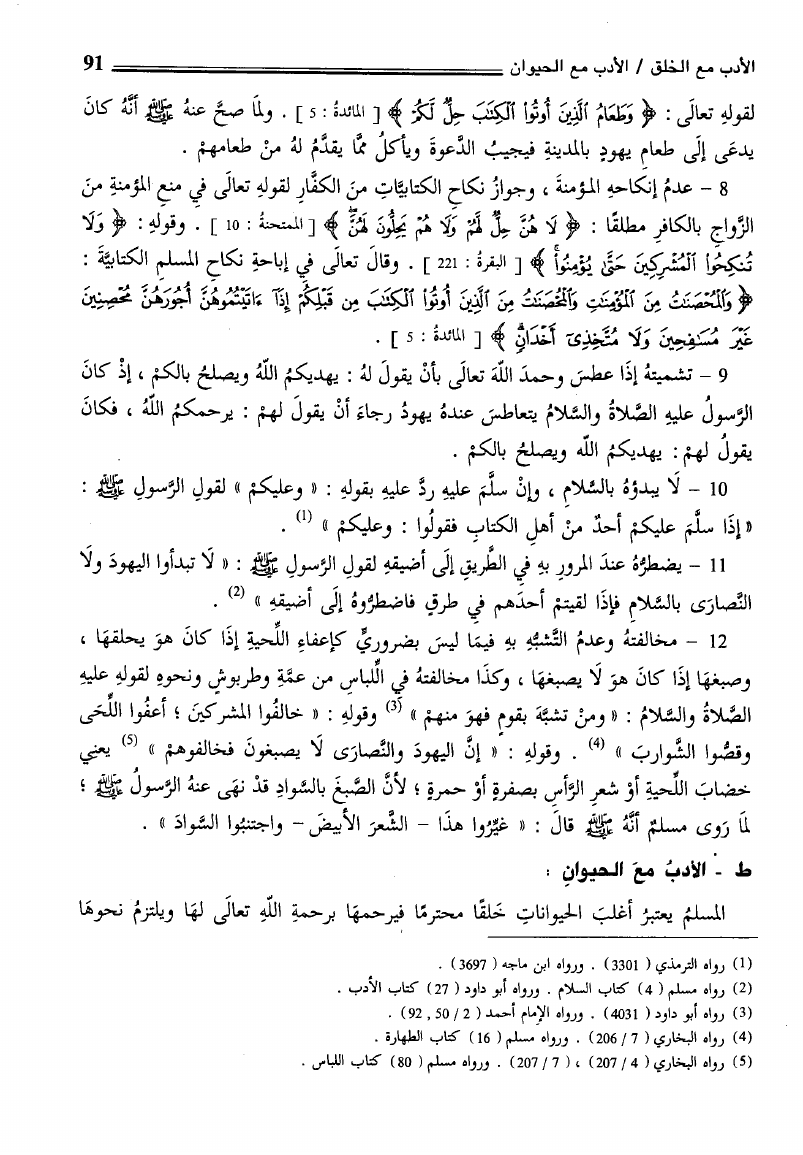 الأدب مع الخلق / الأدب مع الحيوان 91
لقولهِ تعالَى : ﴿ وَطَعَامُ ٱلَّذِينَ أُوتُوا۟ ٱلْكِتَـٰبَ حِلٌّ لَّكُمْ ﴾ [ المائدةُ : 5 ] . ولمَا صحَّ عنهُ ﷺ أنَّهُ كانَ
يدعَى إلَى طعامِ يهودِ بالمدينةِ فيجيبُ الدَّعوةَ ويأكلُ ممَّا يقدَّمُ لهُ منْ طعامهمْ .
8 – عدمُ إنكاحهِ المؤمنةَ ، وجوازُ نكاحِ الكتابيَّاتِ منَ الكفَّارِ لقولهِ تعالَى في منعِ المؤمنةِ منَ
الزَّواجِ بالكافرِ مطلقًا : ﴿ لَا هُنَّ حِلٌّ لَّهُمْ وَلَا هُمْ يَحِلُّونَ لَهُنَّ ﴾ [ الممتحنةُ : 10 ] . وقولهِ : ﴿ وَلَا
تُنكِحُوا۟ ٱلْمُشْرِكِينَ حَتَّىٰ يُؤْمِنُوا۟ ﴾ [ البقرةُ : 221 ] . وقالَ تعالَى في إباحةِ نكاحِ المسلمِ الكتابيَّةَ :
﴿ وَٱلْمُحْصَنَـٰتُ مِنَ ٱلْمُؤْمِنَـٰتِ وَٱلْمُحْصَنَـٰتُ مِنَ ٱلَّذِينَ أُوتُوا۟ ٱلْكِتَـٰبَ مِن قَبْلِكُمْ إِذَآ ءَاتَيْتُمُوهُنَّ أُجُورَهُنَّ مُحْصِنِينَ
غَيْرَ مُسَـٰفِحِينَ وَلَا مُتَّخِذِىٓ أَخْدَانٍ ﴾ [ المائدةُ : 5 ] .
9 – تشميتهُ إذَا عطسَ وحمدَ اللّهَ تعالَى بأنْ يقولَ لهُ : يهديكمُ اللّهُ ويصلحُ بالكمْ ، إذْ كانَ
الرَّسولُ عليهِ الصَّلاةُ والسَّلامُ يتعاطسُ عندهُ يهودُ رجاءَ أنْ يقولَ لهمْ : يرحمكمُ اللّهُ ، فكانَ
يقولُ لهمْ : يهديكمُ الله ويصلحُ بالكمْ .
10 – لَا يبدؤهُ بالسَّلامِ ، وإنْ سلَّمَ عليهِ ردَّ عليهِ بقولهِ : « وعليكمْ » لقولِ الرَّسولِ ﷺ :
« إذَا سلَّمَ عليكمْ أحدٌ منْ أهلِ الكتابِ فقولُوا : وعليكمْ » (1) .
11 – يضطرُّهُ عندَ المرورِ بهِ في الطَّريقِ إلَى أضيقهِ لقولِ الرَّسولِ ﷺ : « لَا تبدأوا اليهودَ ولَا
النَّصارَى بالسَّلامِ فإذَا لقيتمْ أحدَهم في طرقٍ فاضطرُّوهُ إلَى أضيقهِ » (2) .
12 – مخالفتهُ وعدمُ التَّشبُّهِ بهِ فيمَا ليسَ بضروريٍّ كإعفاءِ اللِّحيةِ إذَا كانَ هوَ يحلقهَا ،
وصبغهَا إذَا كانَ هوَ لَا يصبغهَا ، وكذَا مخالفتهُ في اللِّباسِ من عمَّةٍ وطربوشٍ ونحوهِ لقولهِ عليهِ
الصَّلاةُ والسَّلامُ : « ومنْ تشبَّهَ بقومٍ فهوَ منهمْ » (3) وقولهِ : « خالفُوا المشركينَ ؛ أعفُوا اللِّحَى
وقصُّوا الشَّواربَ » (4) . وقولهِ : « إنَّ اليهودَ والنَّصارَى لَا يصبغونَ فخالفوهمْ » (5) يعنِي
خضابَ اللِّحيةِ أوْ شعرِ الرَّأسِ بصفرةٍ أوْ حمرةٍ ؛ لأنَّ الصَّبغَ بالسَّوادِ قدْ نهَى عنهُ الرَّسولُ ﷺ ؛
لمَا رَوى مسلمٌ أنَّهُ ﷺ قالَ : « غيِّرُوا هذَا – الشَّعرَ الأبيضَ – واجتنبُوا السَّوادَ » .
ط - الأدبُ معَ الحيوانِ :
المسلمُ يعتبرُ أغلبَ الحيواناتِ خَلقًا محترمًا فيرحمهَا برحمةِ اللّهِ تعالَى لهَا ويلتزمُ نحوهَا
(1) رواه الترمذي ( 3301 ) . ورواه ابن ماجه ( 3697 ) .
(2) رواه مسلم ( 4 ) كتاب السلام . ورواه أبو داود ( 27 ) كتاب الأدب .
(3) رواه أبو داود ( 4031 ) . ورواه الإمام أحمد ( 2 / 50 , 92 ) .
(4) رواه البخاري ( 7 / 206 ) . ورواه مسلم ( 16 ) كتاب الطهارة .
(5) رواه البخاري ( 4 / 207 ) ، ( 7 / 207 ) . ورواه مسلم ( 80 ) كتاب اللباس .